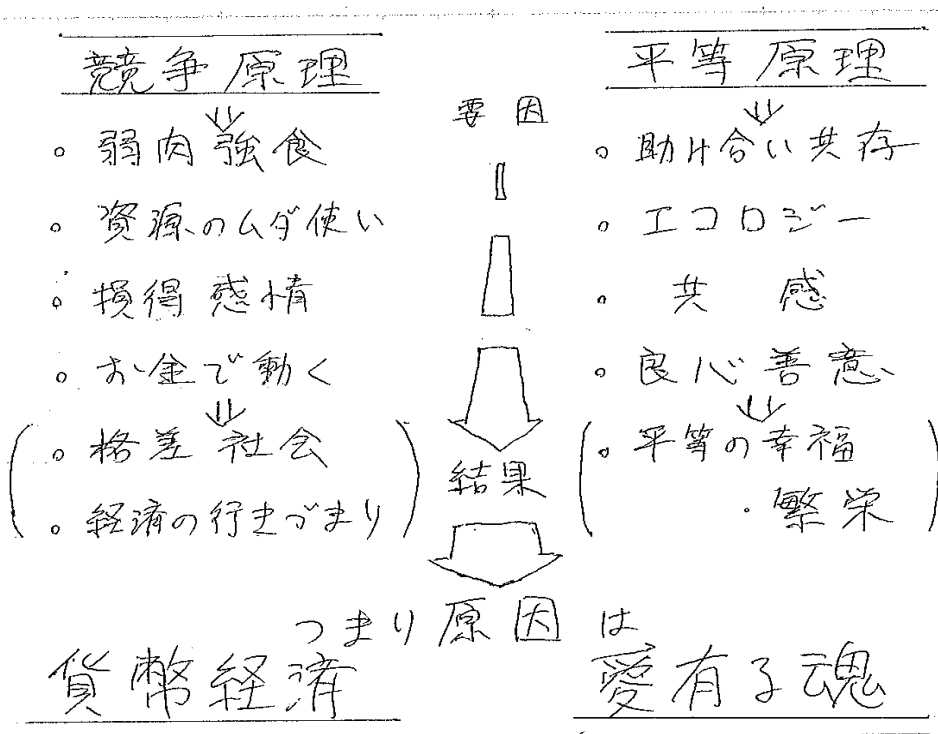 競争原理
⇓
。弱肉強食
。資源のムダ使い
。損得感情
。お金で動く
⇓
(。格差社会
。経済の行きづまり)
要因
結果
平等原理
⇓
。助け合い共存
。エコロジー
。共感
。良心善意
⇓
(。平等の幸福
・繁栄)
つまり原因は
貨幣経済
愛有る魂